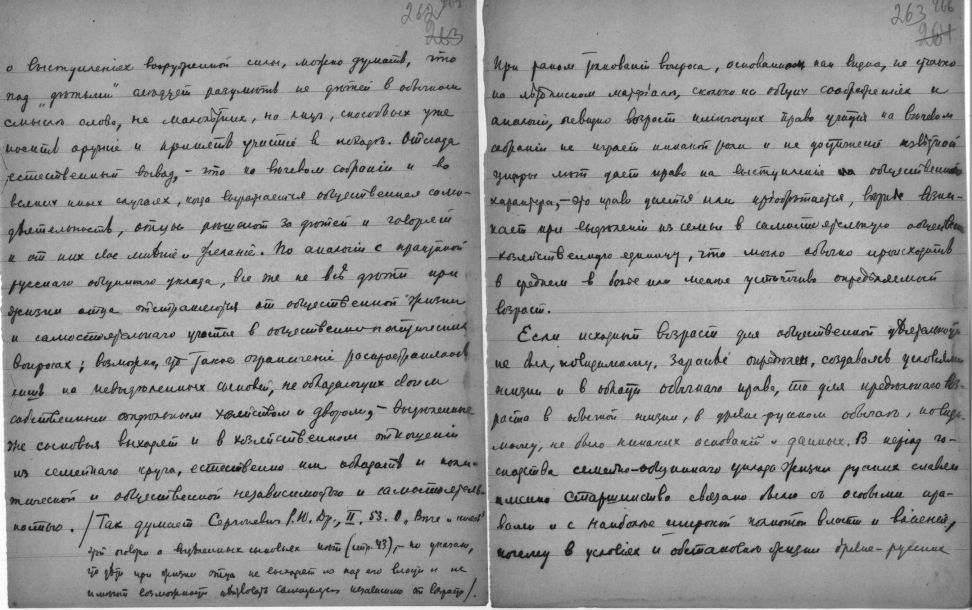 262
263
о выступленіях вооруженной силы, можно думать, что
под "дѣтьми" следует разумѣть не дѣтей в обычном
смыслѣ слова, не малолѣтних, но лиц, способных уже
носить оружіе и принять участіе в походѣ. Отсюда
естественный вывод, – что на вѣчевом собраніи и во
всяких иных случаях, когда выражается общественная само-
дѣятельность, отцы рѣшают за дѣтей и говорят
и от них свое мнѣніе и желаніе. По аналогіи с практикой
русскаго общиннаго уклада, все же не всѣ дѣти при
жизни отца отстраняются от общественной жизни
и самостоятельнаго участія в общественно-политических
вопросах; возможно, что такое ограниченіе распространялось
лишь на невыдѣленных сыновей, не обладающих своим
собственным отдѣльным хозяйством и двором, – выдѣленные
же сыновья выходят и в хозяйственном отношеніи
из семейнаго круга, естественно им обладать и поли-
тической и общественной независимостью и самостоятель-
ностью. /Так думает Сергѣевич Р. Ю. Др., II, 53. О. Вѣче и
оговорки о выдѣленных сыновьях нѣт (стр. 43), – но указано,
что дѣти при жизни отца не выходят из под его власти и не
имѣют возможности независимо от возраста/.
263 266
264
При таком толкованіи вопроса, основанном, как видно, не столько
на лѣтописном матеріалѣ, сколько на общих соображеніях и
аналогіи, очевидно возраст имѣющих право участія на вѣчевом
собраніи не играет никакой роли и не достиженіе извѣстной
цифры лѣт дает право на выступленіе общественнаго
характера, – это право дается или пріобрѣтается, вѣрнѣе возни-
кает при выдѣленіи из семьи в самостоятельную общественно
-хозяйственную единицу, что могло обычно происходить
в среднем в более или менѣе устойчиво опредѣляемый
возраст.
Если исходный возраст для общественной дѣятельности
не был, повидимому, заранѣе опредѣлен, создаваясь условіями
жизни и в области обычнаго права, то для предѣльнаго воз-
раста в обычной жизни, в древне-русском обычаѣ, повиди-
мому, не было никаких основаній и данных. В період го-
сподства семейно-общиннаго уклада жизни русских славян
именно старшинство связано было съ особыми пра-
вами и с наиболѣе широкой полнотой власти и вліяній,
почему в условіях и обстановкѣ жизни древне-русских